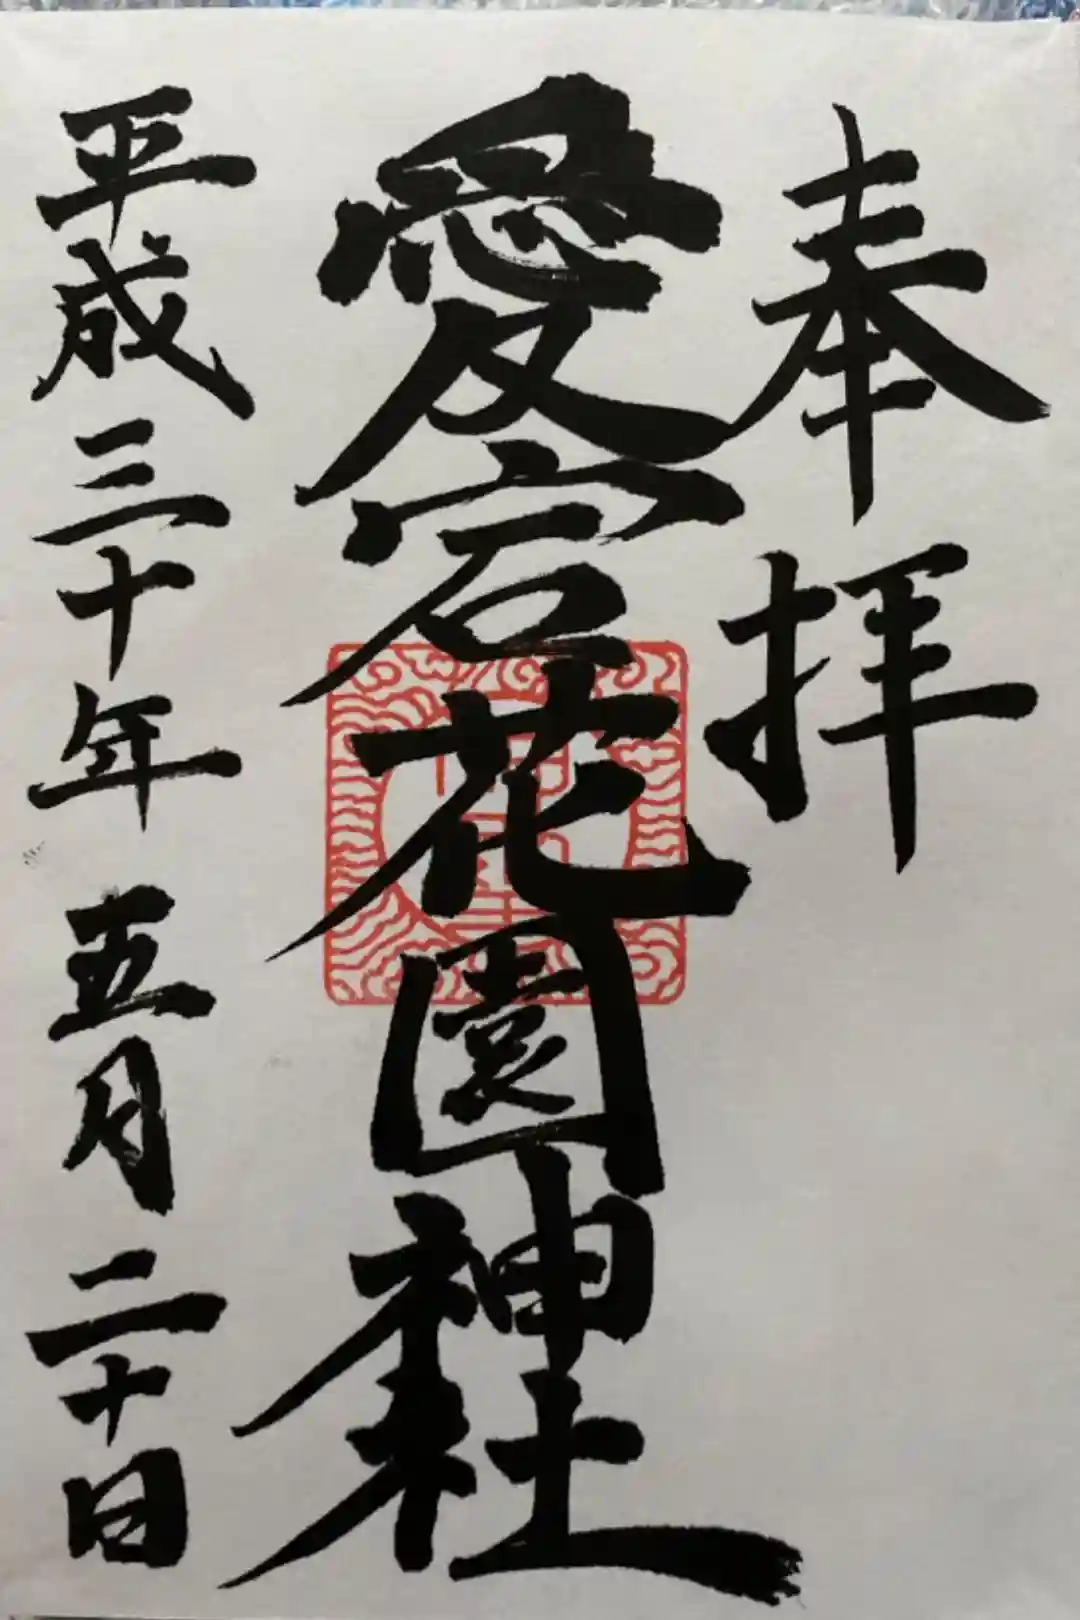 奉拝
愛宕花園神社
平成三十年五月二十日